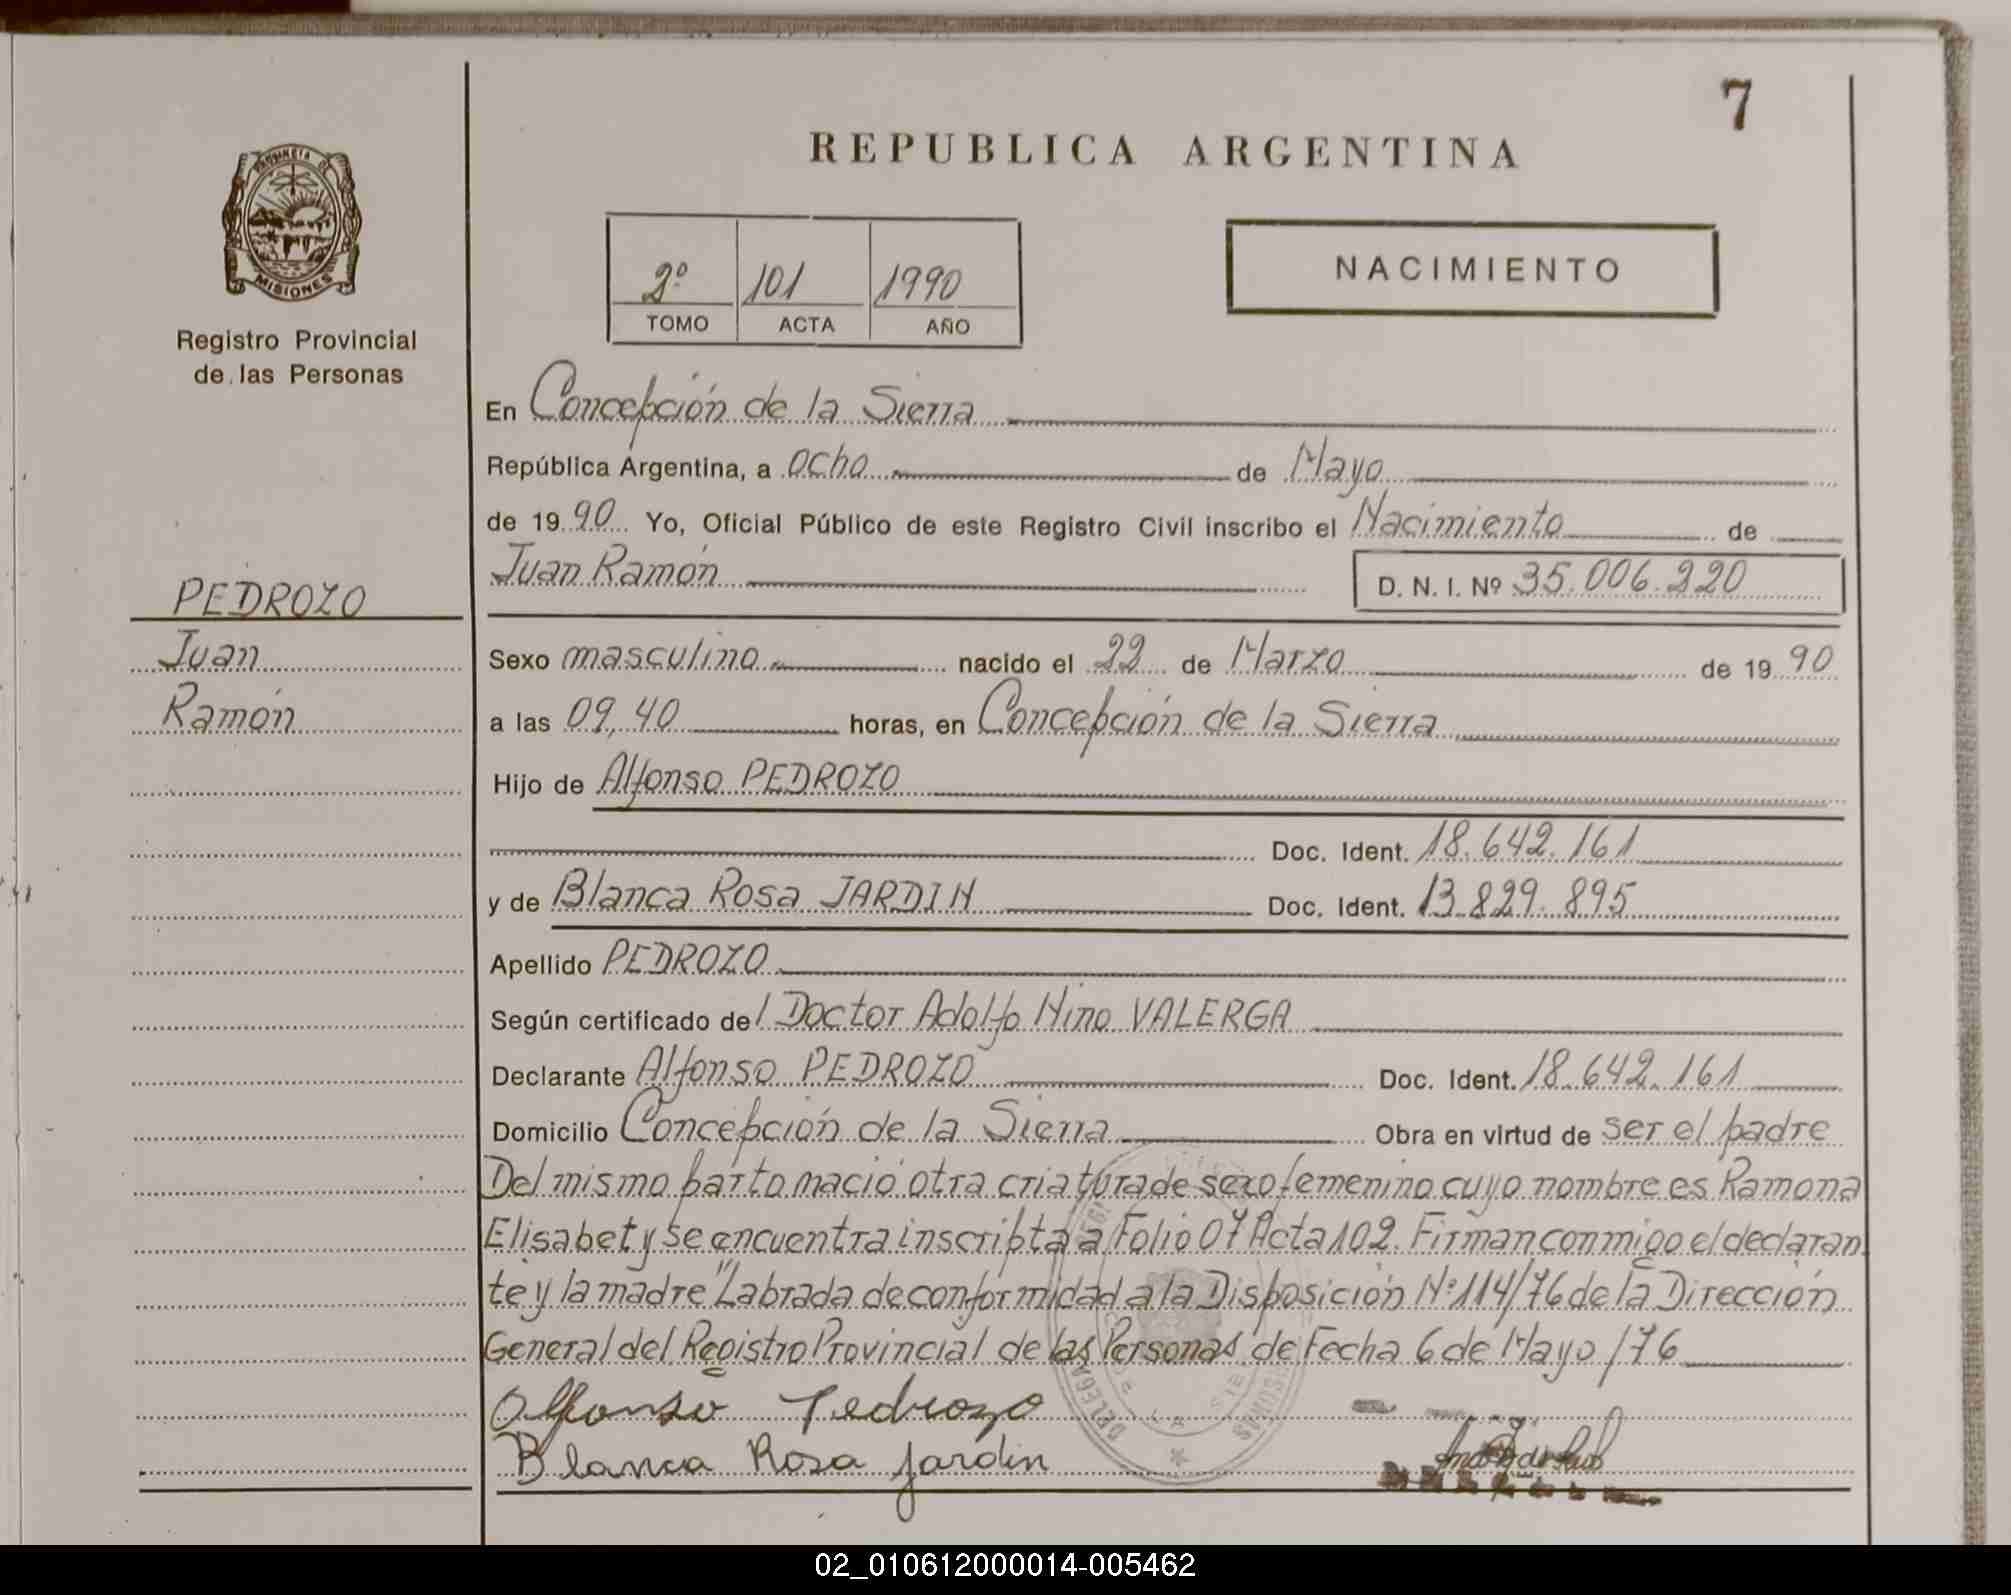 7
REPUBLICA ARGENTINA
PROVINCIA DE
MISIONES
Registro Provincial
de las Personas
2º 101 1990
TOMO ACTA AÑO
NACIMIENTO
En Concepción de la Sierra
República Argentina, a ocho de Mayo
de 1990 Yo, Oficial Público de este Registro Civil inscribo el Nacimiento de
Juan Ramón D. N. I. Nº 35.006.220
PEDROZO
Juan
Ramón
Sexo masculino nacido el 22 de Marzo de 1990
a las 09,40 horas, en Concepción de la Sierra
Hijo de Alfonso PEDROZO
Doc. Ident. 18.642.161
y de Blanca Rosa JARDIN Doc. Ident. 13.829.895
Apellido PEDROZO
Según certificado del Doctor Adolfo Nino VALERGA
Declarante Alfonso PEDROZO Doc. Ident. 18.642.161
Domicilio Concepción de la Sierra Obra en virtud de ser el padre
Del mismo parto nació otra criatura de sexo femenino cuyo nombre es Ramona
Elisabet y se encuentra inscripta a Folio 07 Acta 102. Firman conmigo el declaran
te y la madre "Labrada de conformidad a la Disposición Nº 114/76 de la Dirección
General del Registro Provincial de las Personas de Fecha 6 de Mayo/76
Alfonso Pedrozo
Blanca Rosa Jardin
02_010612000014-005462